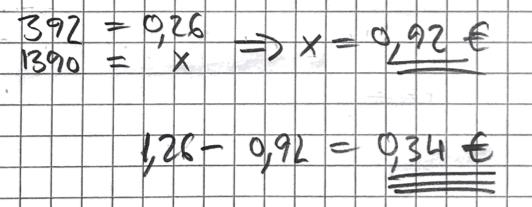 392 = 0,26
1390 = x ⇒ x = 0,92 €
1,26 - 0,92 = 0,34 €